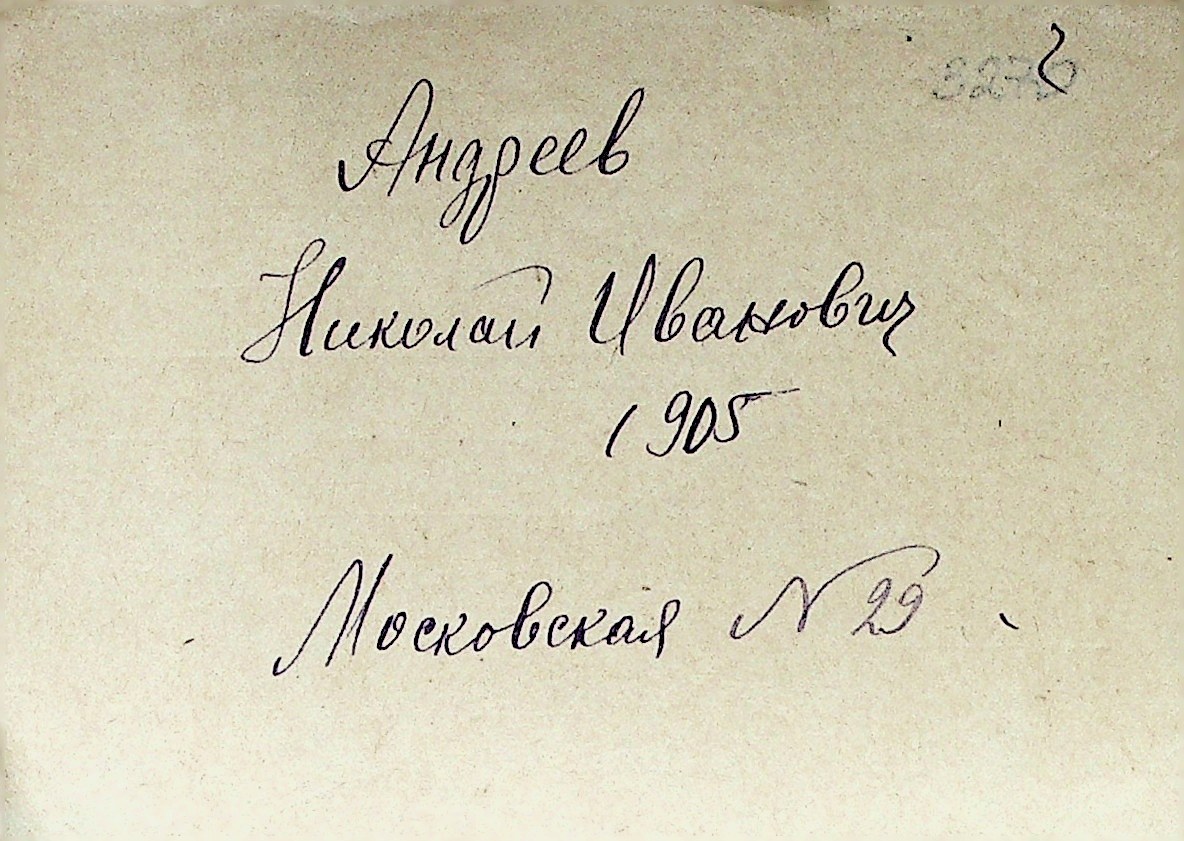 Андреев
Николай Иванович
1905
Московская N 29